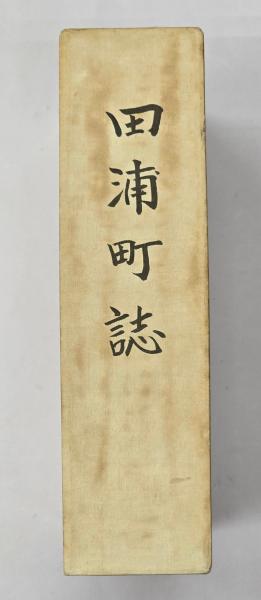 田浦町誌